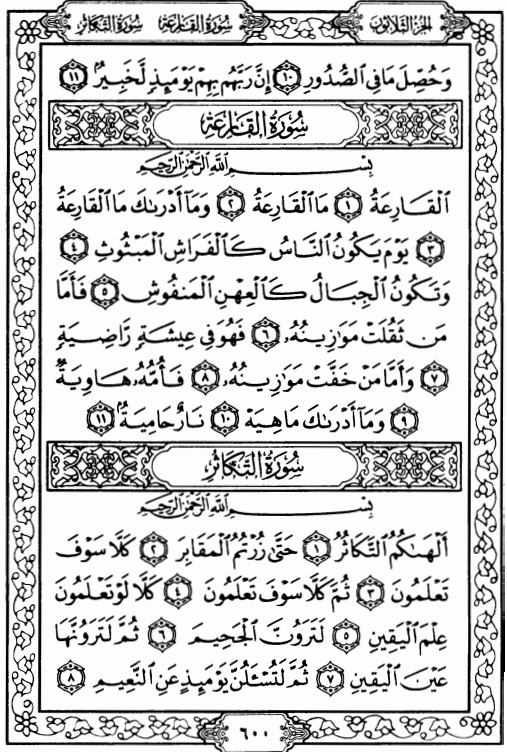 الجزء الثلاثون سورة القارعة سورة التكاثر
وَحُصِّلَ مَا فِى ٱلصُّدُورِ ۝١٠ إِنَّ رَبَّهُم بِهِمْ يَوْمَئِذٍ لَّخَبِيرٌۢ ۝١١
سورة القارعة
بِسْمِ ٱللَّهِ ٱلرَّحْمَٰنِ ٱلرَّحِيمِ
ٱلْقَارِعَةُ ۝١ مَا ٱلْقَارِعَةُ ۝٢ وَمَآ أَدْرَىٰكَ مَا ٱلْقَارِعَةُ
۝٣ يَوْمَ يَكُونُ ٱلنَّاسُ كَٱلْفَرَاشِ ٱلْمَبْثُوثِ ۝٤
وَتَكُونُ ٱلْجِبَالُ كَٱلْعِهْنِ ٱلْمَنفُوشِ ۝٥ فَأَمَّا
مَن ثَقُلَتْ مَوَٰزِينُهُۥ ۝٦ فَهُوَ فِى عِيشَةٍ رَّاضِيَةٍ
۝٧ وَأَمَّا مَنْ خَفَّتْ مَوَٰزِينُهُۥ ۝٨ فَأُمُّهُۥ هَاوِيَةٌ
۝٩ وَمَآ أَدْرَىٰكَ مَا هِيَهْ ۝١٠ نَارٌ حَامِيَةٌۢ ۝١١
سورة التكاثر
بِسْمِ ٱللَّهِ ٱلرَّحْمَٰنِ ٱلرَّحِيمِ
أَلْهَىٰكُمُ ٱلتَّكَاثُرُ ۝١ حَتَّىٰ زُرْتُمُ ٱلْمَقَابِرَ ۝٢ كَلَّا سَوْفَ
تَعْلَمُونَ ۝٣ ثُمَّ كَلَّا سَوْفَ تَعْلَمُونَ ۝٤ كَلَّا لَوْ تَعْلَمُونَ
عِلْمَ ٱلْيَقِينِ ۝٥ لَتَرَوُنَّ ٱلْجَحِيمَ ۝٦ ثُمَّ لَتَرَوُنَّهَا
عَيْنَ ٱلْيَقِينِ ۝٧ ثُمَّ لَتُسْـَٔلُنَّ يَوْمَئِذٍ عَنِ ٱلنَّعِيمِ ۝٨
٦٠٠